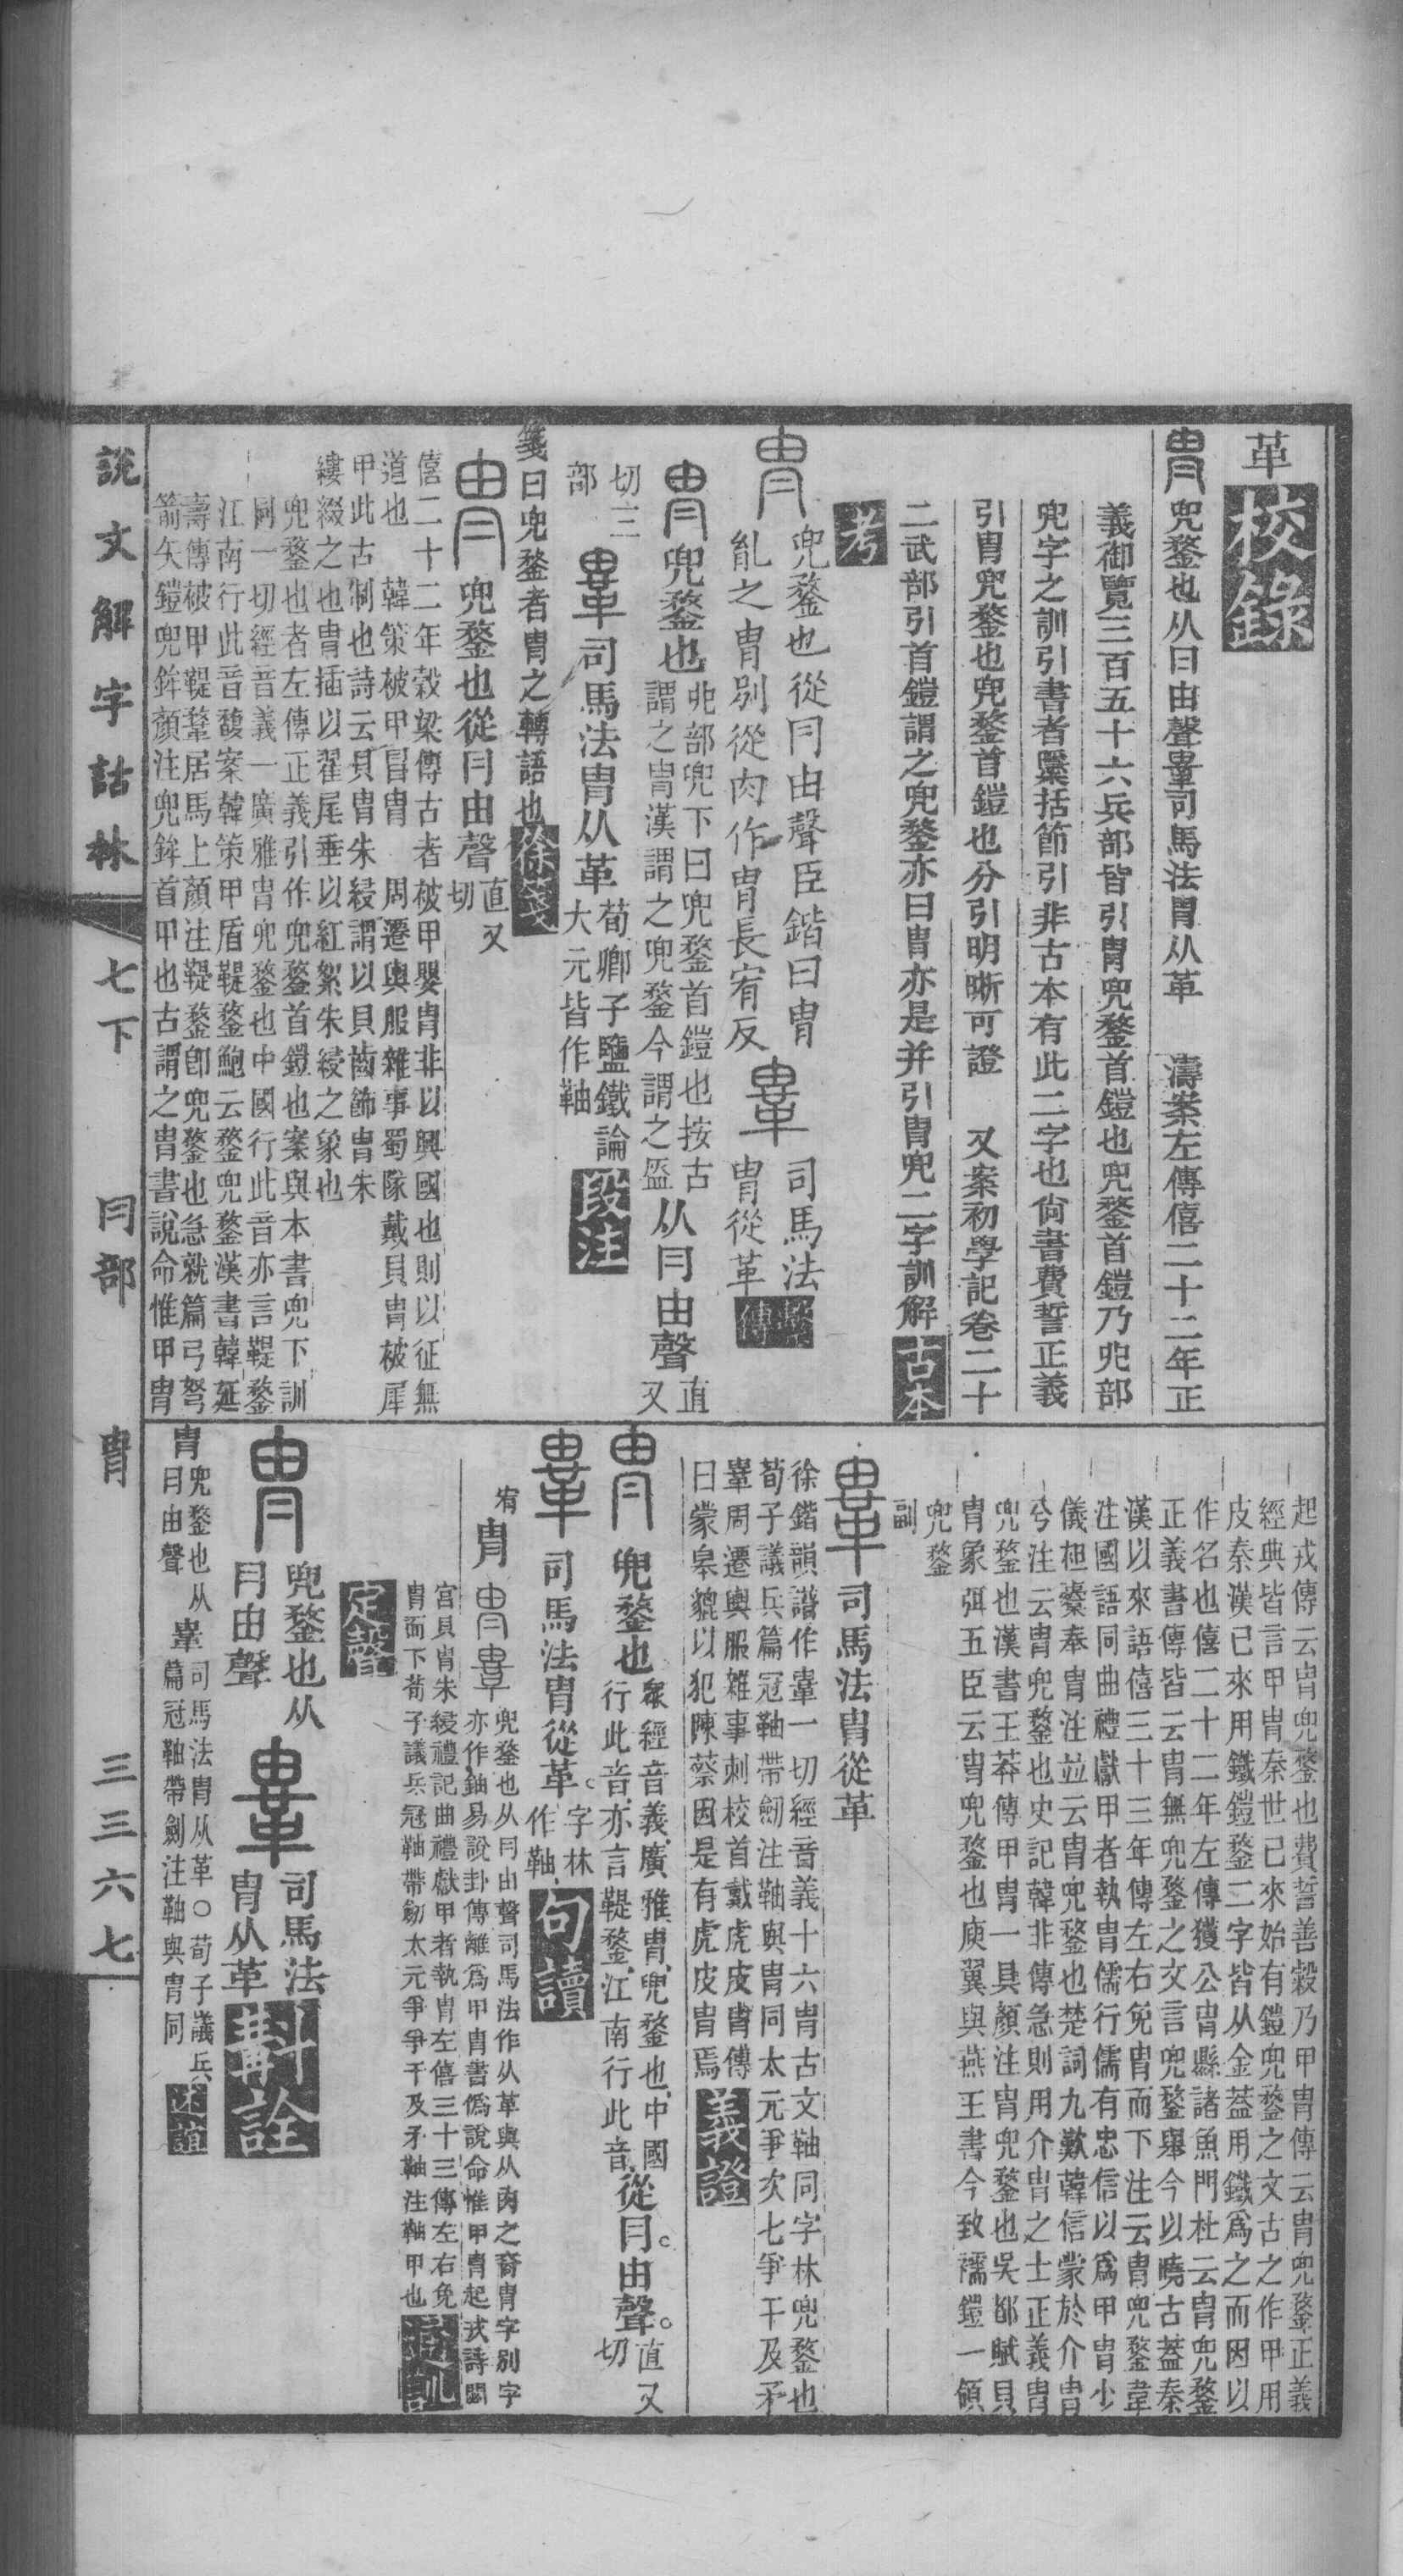 革校錄
冑兜鍪也从冃由聲𩊄司馬法冑从革　濤案左傳僖二十二年正
義御覽三百五十六兵部皆引冑兜鍪首鎧也兜鍪首鎧乃皃部
兜字之訓引書者檃括節引非古本有此二字也尙書費誓正義
引冑兜鍪也兜鍪首鎧也分引明晰可證　又案初學記卷二十
二武部引首鎧謂之兜鍪亦曰冑亦是并引冑兜二字訓解古本
考
冑兜鍪也從冃由聲臣鍇曰冑
亂之冑別從肉作冑長宥反
𩊄司馬法
冑從革
繫傳
冑兜鍪也
皃部兜下曰兜鍪首鎧也按古
謂之冑漢謂之兜鍪今謂之盔
从冃由聲
直又
切三
部
𩊄司馬法冑从革
荀卿子鹽鐵論
大元皆作䩜
段注
箋曰兜鍪者冑之轉語也徐箋
冑兜鍪也從冃由聲
直又
切
僖二十二年穀梁傳古者被甲嬰冑非以興國也則以征無
道也　韓策被甲冒冑　周遷輿服雜事蜀隊戴貝冑被犀
甲此古制也詩云貝冑朱綅謂以貝齒飾冑朱
縷綴之也冑插以翟尾垂以紅絮朱綅之象也
兜鍪也者左傳正義引作兜鍪首鎧也案與本書兜下訓
同一切經音義一廣雅冑兜鍪也中國行此音亦言鞮鍪
江南行此音馥案韓策甲盾鞮鍪鮑云鍪兜鍪漢書韓延
壽傳被甲鞮鞪居馬上顏注鞮鍪卽兜鍪也急就篇弓弩
箭矢鎧兜鉾顏注兜鉾首甲也古謂之冑書說命惟甲冑
起戎傳云冑兜鍪也費誓善穀乃甲冑傳云冑兜鍪正義
經典皆言甲冑秦世已來始有鎧兜鍪之文古之作甲用
皮秦漢已來用鐵鎧鍪二字皆从金蓋用鐵爲之而因以
作名也僖二十二年左傳獲公冑縣諸魚門杜云冑兜鍪
正義書傳皆云冑無兜鍪之文言兜鍪舉今以曉古蓋秦
漢以來語僖三十三年傳左右免冑而下注云冑兜鍪韋
注國語同曲禮獻甲者執冑儒行儒有忠信以爲甲冑少
儀袒櫜奉冑注並云冑兜鍪也楚詞九歎韓信蒙於介冑
兮注云冑兜鍪也史記韓非傳急則用介冑之士正義冑
兜鍪也漢書王莽傳甲冑一具顏注冑兜鍪也吳都賦貝
冑象弭五臣云冑兜鍪也庾翼與燕王書今致襦鎧一領
兜鍪
副
𩊄司馬法冑從革
徐鍇韻譜作𩊄一切經音義十六冑古文䩜同字林兜鍪也
荀子議兵篇冠䩜帶劒注䩜與冑同太元爭次七爭干及矛
䩜周遷輿服雜事刺校首戴虎皮冑傳
曰蒙皋貔以犯陳蔡因是有虎皮冑焉
義證
冑兜鍪也
衆經音義廣雅冑兜鍪也中國
行此音亦言鞮鍪江南行此音
從冃由聲
直又
切
𩊄司馬法冑從革
字林
作䩜
句讀
宥
冑𩊄
兜鍪也从冃由聲司馬法作从革與从肉之裔冑字別字
亦作鈾易說卦傳離爲甲冑書僞說命惟甲冑起戎詩閟
宮貝冑朱綅禮記曲禮獻甲者執冑左僖三十三傳左右免
冑而下荀子議兵冠䩜帶劒太元爭爭干及矛䩜注䩜甲也
通訓
定聲
冑兜鍪也从
冃由聲
𩊄司馬法
冑从革
斠詮
冑
兜鍪也从
冃由聲
𩊄
司馬法冑从革○荀子議兵
篇冠䩜帶劍注䩜與冑同
述誼
說文解字詁林　七下　冃部　冑　三三六七